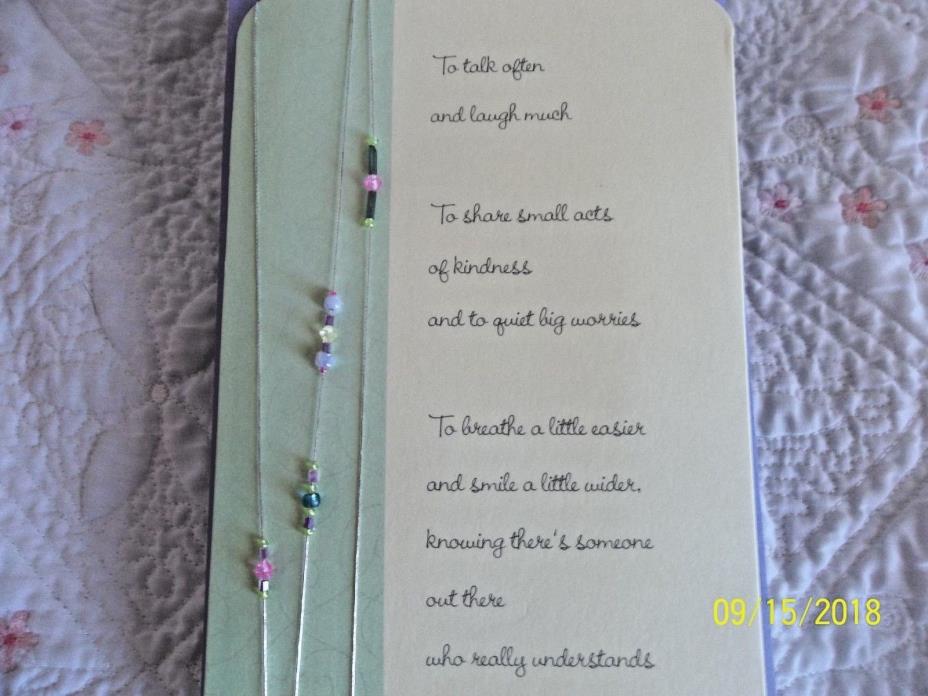 To talk often
and laugh much
To share small acts
of kindness
and to quiet big worries
To breathe a little easier
and smile a little wider,
knowing there's someone
out there
who really understands
09/15/2018